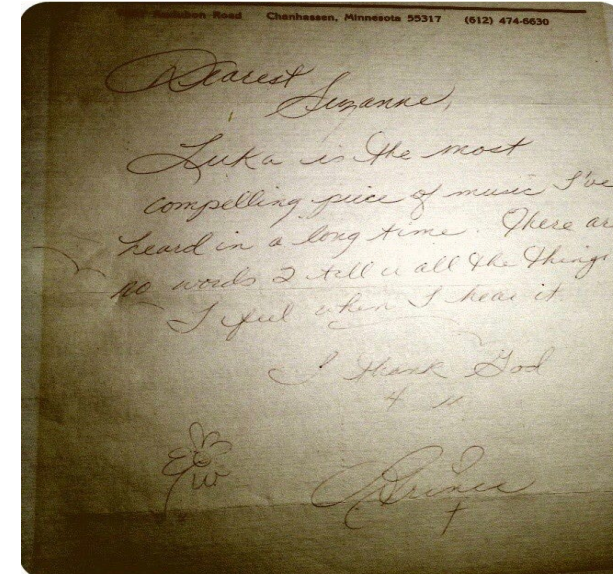 Audubon Road Chanhassen, Minnesota 55317 (612) 474-6630
Dearest
Suzanne,
Luka is the most
compelling piece of music I've
heard in a long time. There are
no words 2 tell u all the things
I feel when I hear it
I thank God
4 u
Prince